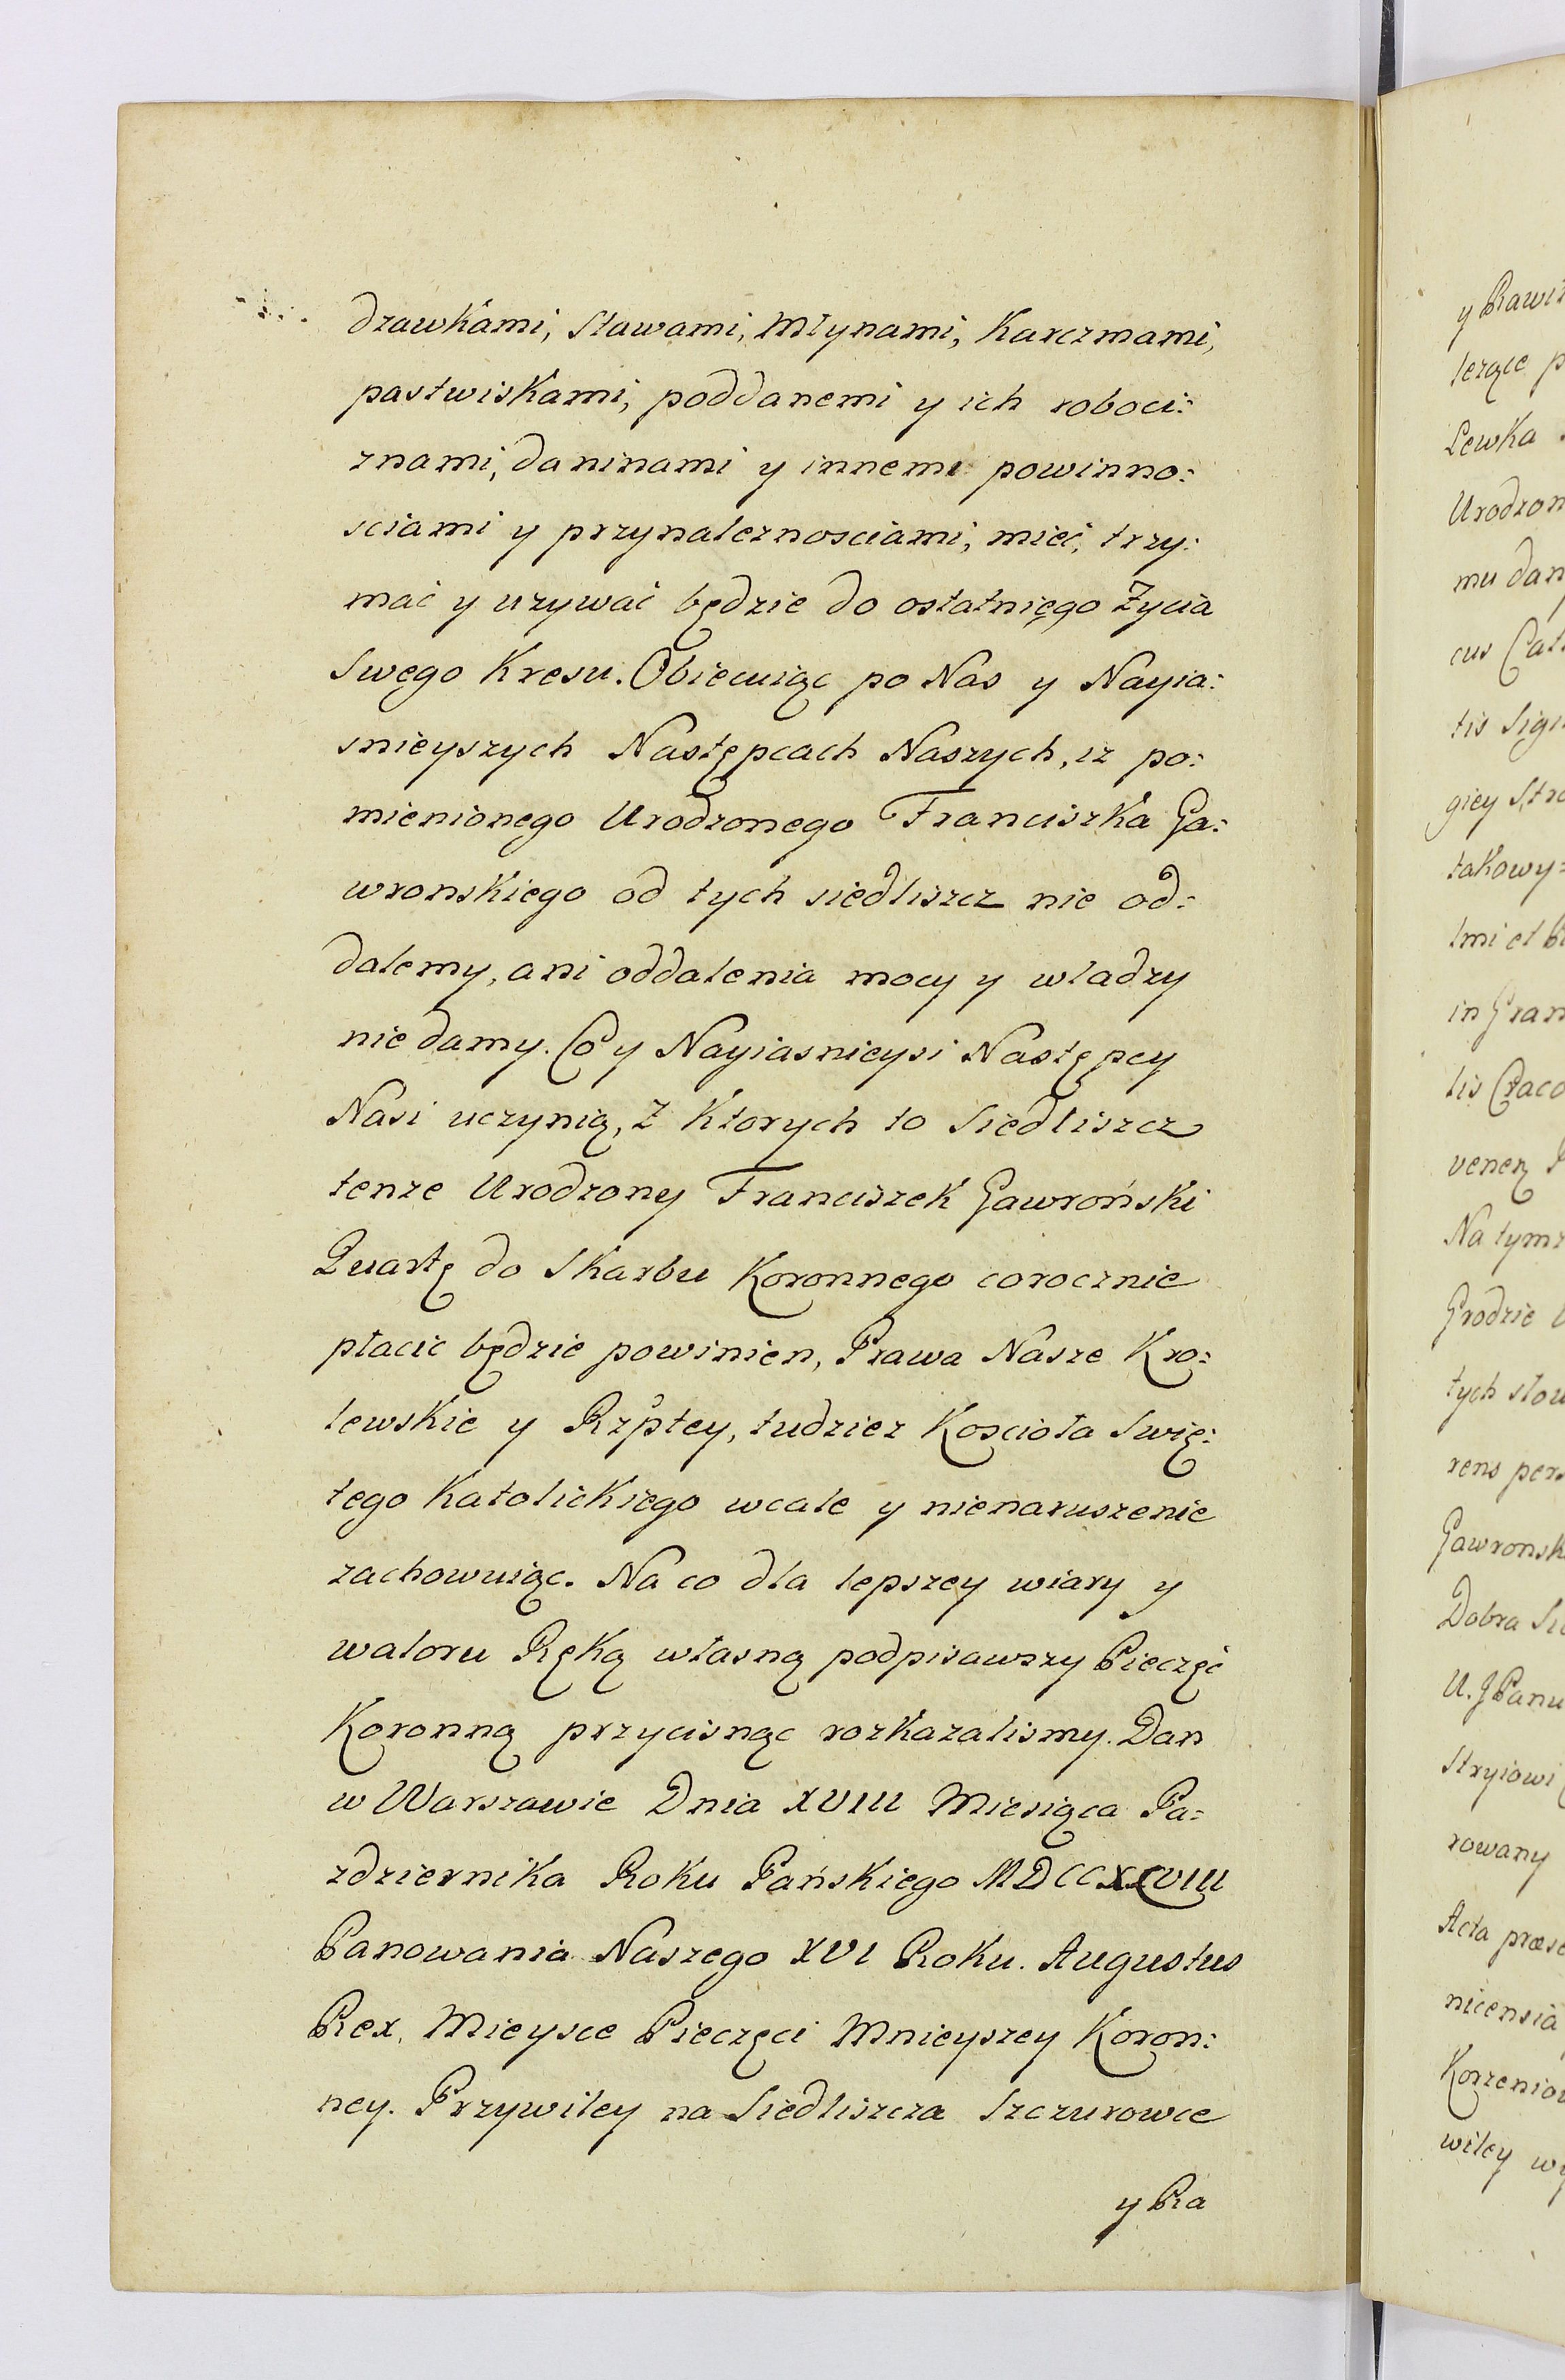 dzawkami, Stawami, Młynami, Karczmami,
pastwiskami, poddanemi y ich roboci:
znami, daninami y innemi powinno:
sciami y przynaleznosciami, mieć, trzy:
mać y uzywać będzie do ostatnięgo Zycia
Swego Kresu. Obiecuiąc po Nas y Nayia:
snieyszych Następcach Naszych, iz po:
mienionego Urodzonego Franciszka Ga:
wronskiego od tych siedliszcz nie od:
dalemy, ani oddalenia mocy y władzy
nie damy. Co y Nayiasnieysi Następcy
Nasi uczynią, Z Ktorych to Siedliszcz
tenze Urodzony Franciszek Gawroński
Quartę do Skarbu Koronnego corocznie
płacic będzie powinien, Prawa Nasze Kro:
lewskie y Rzptey, tudziez Koscioła Swię:
tego Katolickiego wcale y nienaruszenie
zachowuiąc. Na co dla lepszey wiary y
waloru Ręką własną podpisawszy Pieczęć
Koronną przycisnąc rozkazalismy. Dan
w Warszawie Dnia XVIII Miesiąca Pa:
zdziernika Roku Pańskiego MDCCXXVIII
Panowania Naszego XVI Roku. Augustus
Rex. Mieysce Pieczęci Mnieyszey Koron:
ney. Przywiley na Siedliszcza Szczurowce
y Ra
y Rawi
lezące p
Lewka
Urodzon
mu dan
cus Cal
tis Sig
giey Stro
takowy:
in Gran
lis Craco
venen
Na tym
Grodzie
tych słow
rens per
Gawronsk
Dobra Si
U. J Panu
Stryiowi
rowany
Acta præse
nicensia
Korzeniow
wiley wy